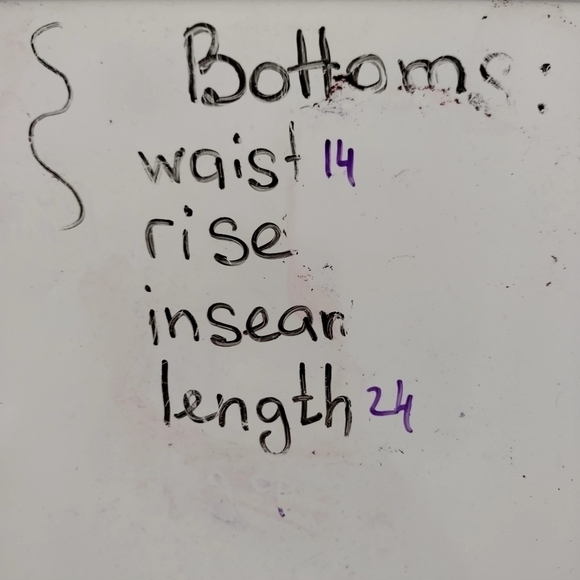 Bottoms:
waist 14
rise
insean
length 24